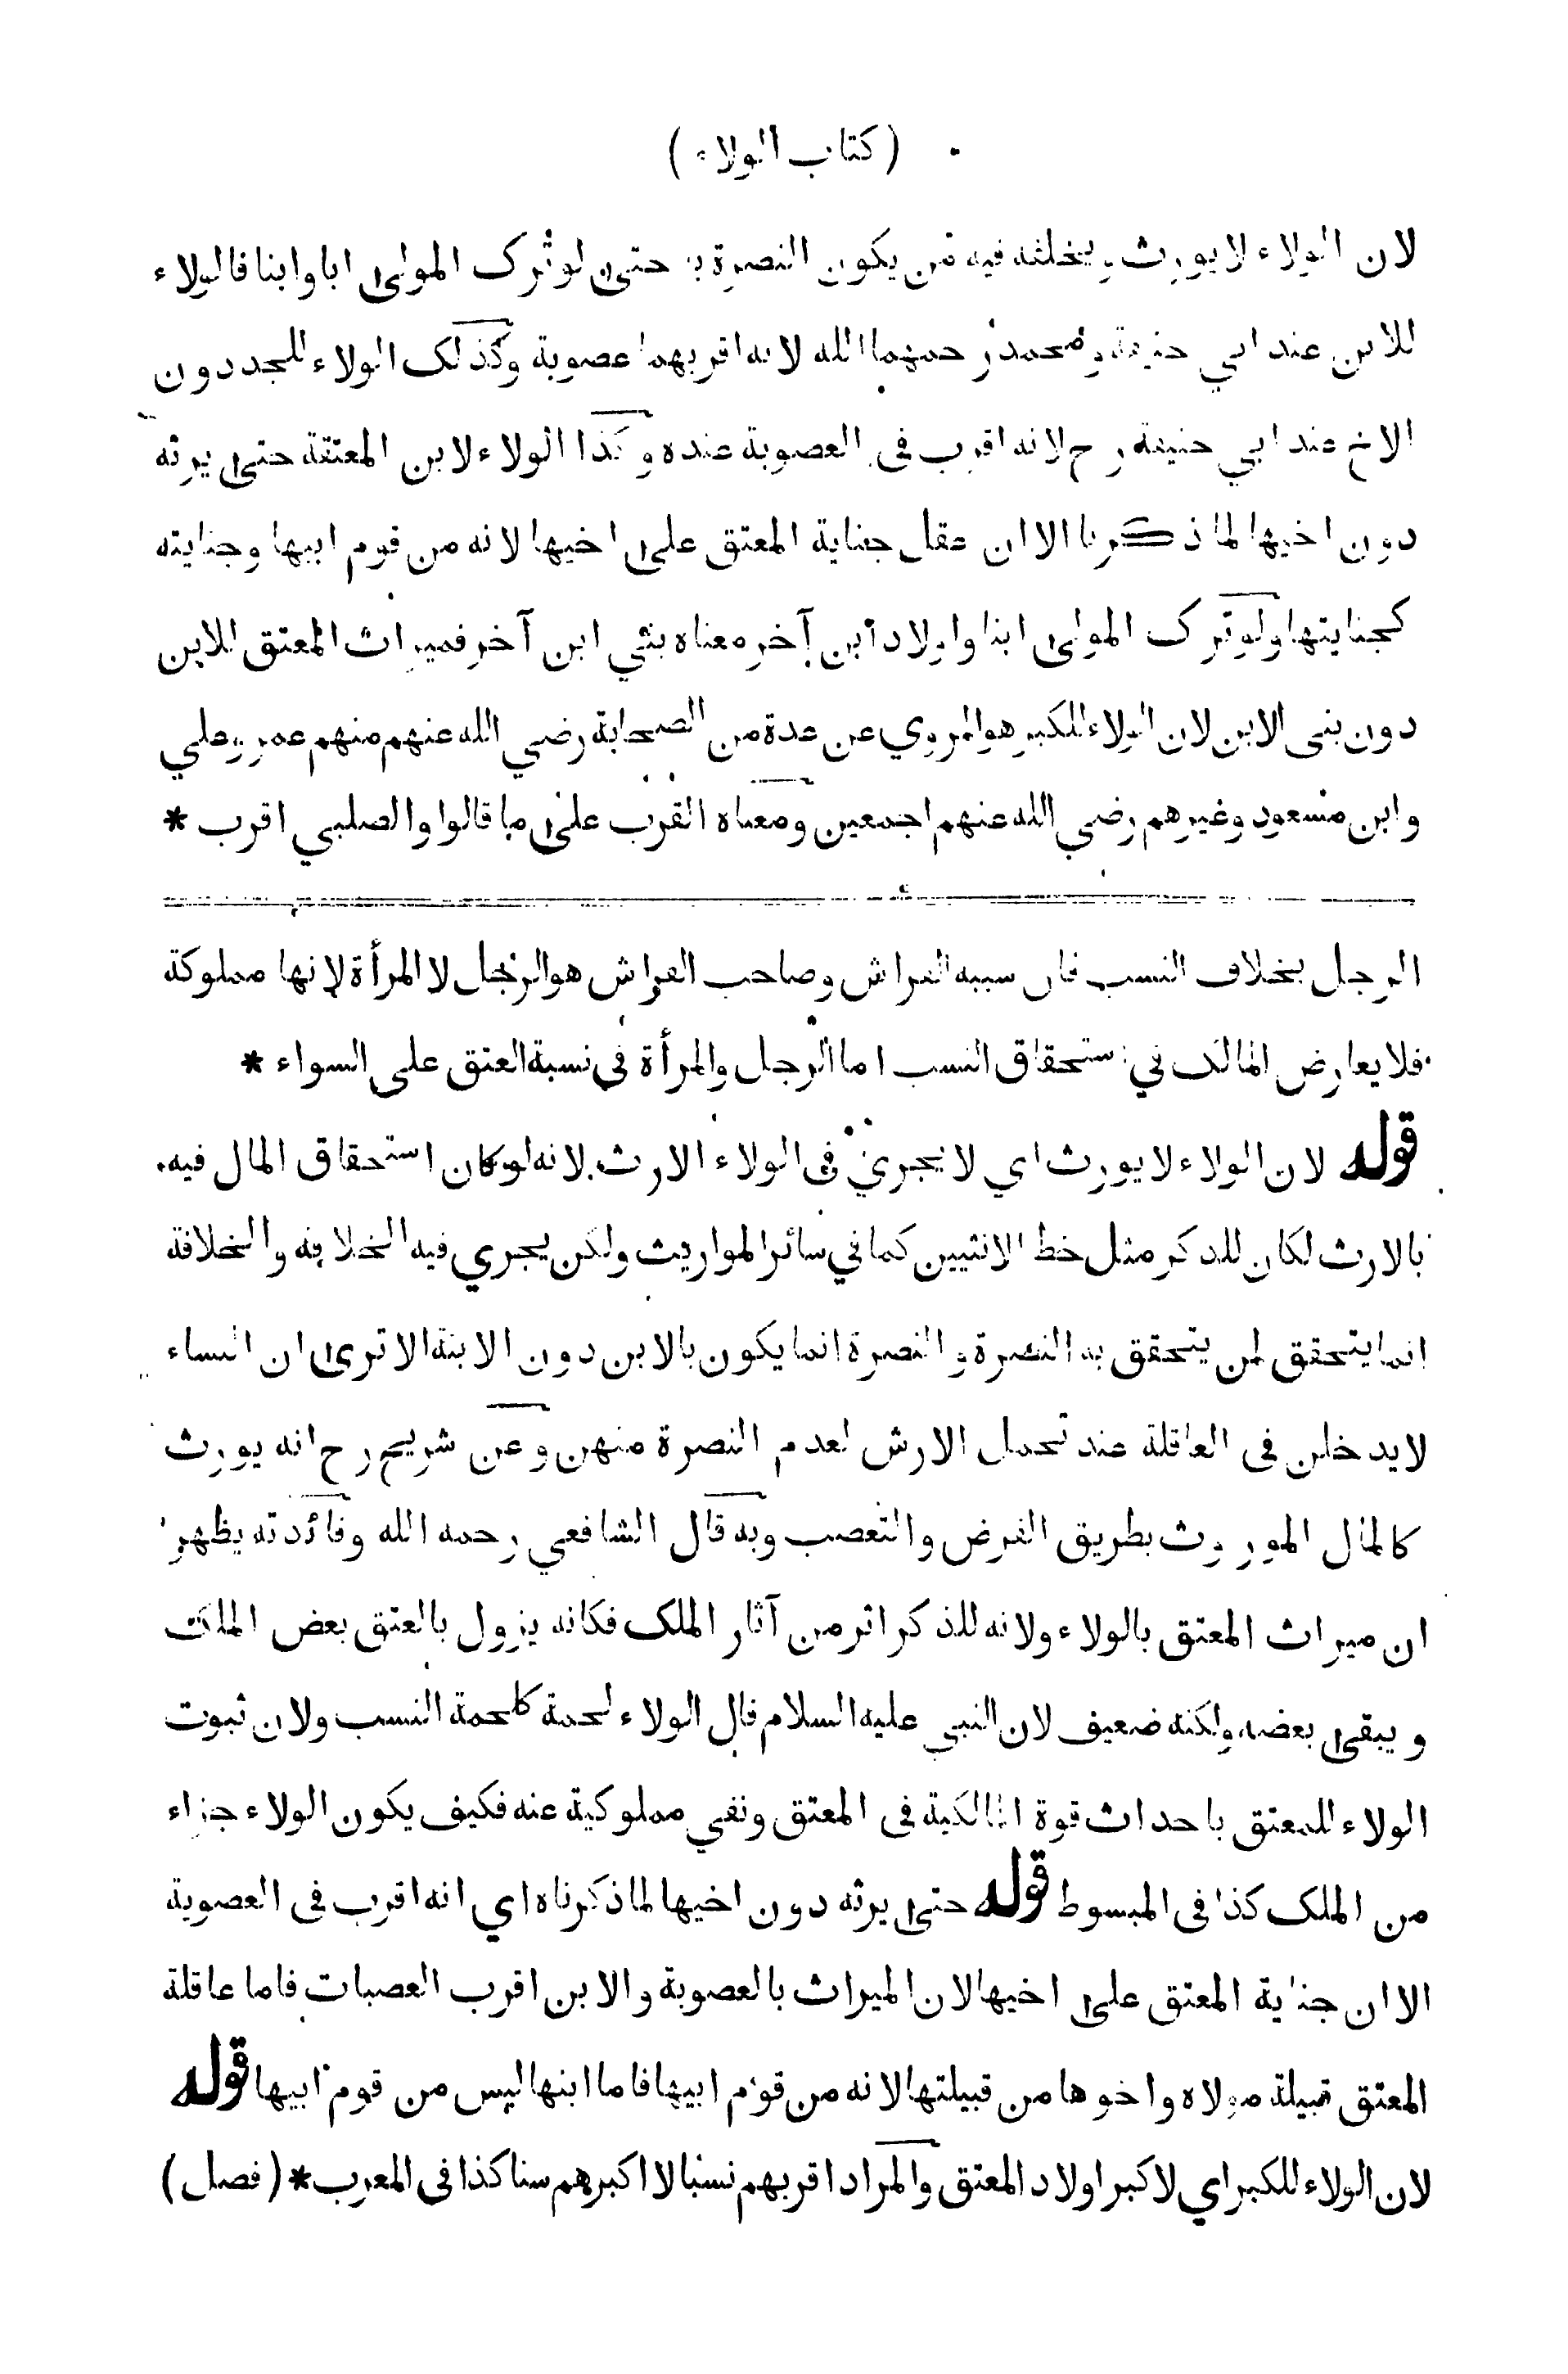 (كتاب الولاء)
لان الولاء لا يورث ويخلفه فيه من يكون النصرة به حتى لو ترك المولى ابا وابنا فالولاء
للابن عند ابي حنيفة ومحمد رحمهما الله لانه اقربهما عصوبة وكذلك الولاء للجد دون
الاخ عند ابي حنيفة رح لانه اقرب في العصوبة عنده وكذا الولاء لابن المعتقة حتى يرثه
دون اخيها لما ذكرنا الا ان عقل جناية المعتق على اخيها لانه من قوم ابيها وجنايته
كجنايتها ولو ترك المولى ابنا واولاد ابن آخر معناه بني ابن آخر فميراث المعتق للابن
دون بنى الابن لان الولاء للكبر هو المروي عن عدة من الصحابة رضي الله عنهم منهم عمر وعلي
وابن مسعود وغيرهم رضي الله عنهم اجمعين ومعناه القرب على ما قالوا والصلبي اقرب *
الرجل بخلاف النسب فان سببه الفراش وصاحب الفراش هو الرجل لا المرأة لانها مملوكة
فلا يعارض المالك في استحقاق النسب اما الرجل والمرأة في نسبة العتق على السواء *
قوله لان الولاء لا يورث اي لا يجري في الولاء الارث لانه لو كان استحقاق المال فيه
بالارث لكان للذكر مثل خط الانثيين كما في سائر المواريث ولكن يجري فيه الخلافة والخلافة
انما يتحقق لمن يتحقق به النصرة والنصرة انما يكون بالابن دون الابنة الا ترى ان النساء
لا يدخلن في العاقلة عند تحمل الارش لعدم النصرة منهن وعن شريح رح انه يورث
كالمال الموروث بطريق الفرض والتعصب وبه قال الشافعي رحمه الله وفائدته يظهر
ان ميراث المعتق بالولاء ولانه للذكر اثر من آثار الملك فكانه يزول بالعتق بعض الملك
ويبقى بعضه ولكنه ضعيف لان النبي عليه السلام قال الولاء لحمة كلحمة النسب ولان ثبوت
الولاء للمعتق باحداث قوة المالكية في المعتق ونفي مملوكية عنه فكيف يكون الولاء جزاء
من الملك كذا في المبسوط قوله حتى يرثه دون اخيها لما ذكرناه اي انه اقرب في العصوبة
الا ان جناية المعتق على اخيها لان الميراث بالعصوبة والابن اقرب العصبات فاما عاقلة
المعتق قبيلة مولاه واخوها من قبيلتها لانه من قوم ابيها فاما ابنها ليس من قوم ابيها قوله
لان الولاء للكبر اي لاكبر اولاد المعتق والمراد اقربهم نسبا لا اكبرهم سنا كذا في المغرب * (فصل)